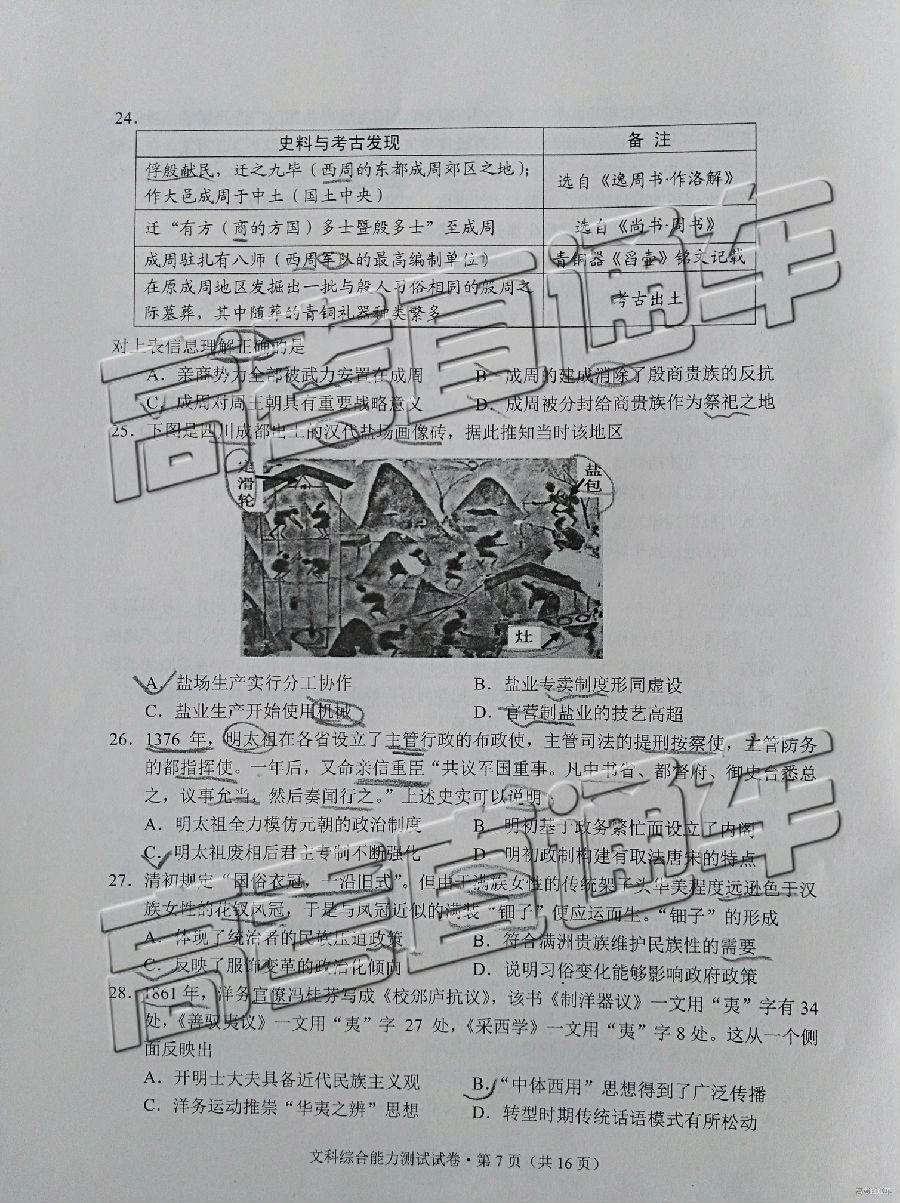 24.
史料与考古发现 备 注
俘殷献民，迁之九毕（西周的东都成周郊区之地）；
作大邑成周于中土（国土中央）
选自《逸周书·作洛解》
迁“有方（商的方国）多士暨殷多士”至成周 选自《尚书·周书》
成周驻扎有八师（西周军队的最高编制单位） 青铜器《曶壶》铭文记载
在原成周地区发掘出一批与殷人习俗相同的殷周之
际墓葬，其中随葬的青铜礼器种类繁多
考古出土
对上表信息理解正确的是
A．亲商势力全部被武力安置在成周 B．成周的建成消除了殷商贵族的反抗
C．成周对周王朝具有重要战略意义 D．成周被分封给商贵族作为祭祀之地
25．下图是四川成都出土的汉代盐场画像砖，据此推知当时该地区
滑轮
盐包
灶
A．盐场生产实行分工协作 B．盐业专卖制度形同虚设
C．盐业生产开始使用机械 D．官营制盐业的技艺高超
26．1376 年，明太祖在各省设立了主管行政的布政使，主管司法的提刑按察使，主管防务
的都指挥使。一年后，又命亲信重臣“共议军国重事。凡中书省、都督府、御史台悉总
之，议事允当，然后奏闻行之。”上述史实可以说明
A．明太祖全力模仿元朝的政治制度 B．明初基于政务繁忙而设立了内阁
C．明太祖废相后君主专制不断强化 D．明初政制构建有取法唐宋的特点
27．清初规定“国俗衣冠，一沿旧式”。但由于满族女性的传统架子头华美程度远逊色于汉
族女性的花钗凤冠，于是与凤冠近似的满装“钿子”便应运而生。“钿子”的形成
A．体现了统治者的民族压迫政策 B．符合满洲贵族维护民族性的需要
C．反映了服饰变革的政治化倾向 D．说明习俗变化能够影响政府政策
28．1861 年，洋务官僚冯桂芬写成《校邠庐抗议》，该书《制洋器议》一文用“夷”字有 34
处，《善驭夷议》一文用“夷”字 27 处，《采西学》一文用“夷”字 8 处。这从一个侧
面反映出
A．开明士大夫具备近代民族主义观 B．“中体西用”思想得到了广泛传播
C．洋务运动推崇“华夷之辨”思想 D．转型时期传统话语模式有所松动
文科综合能力测试试卷·第 7 页（共 16 页）
高考直通车
高考直通车